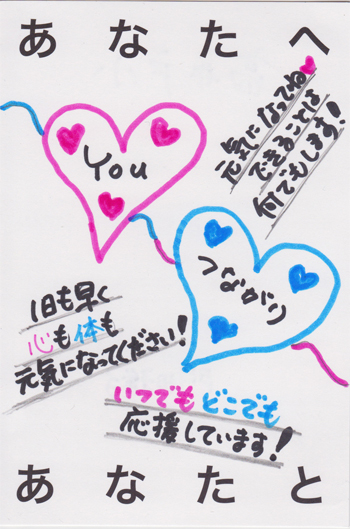 あなたへ
元気になってね
できることは
何でもします!
You
つながり
1日も早く
心も体も
元気になってください!
いつでもどこでも
応援しています!
あなたと